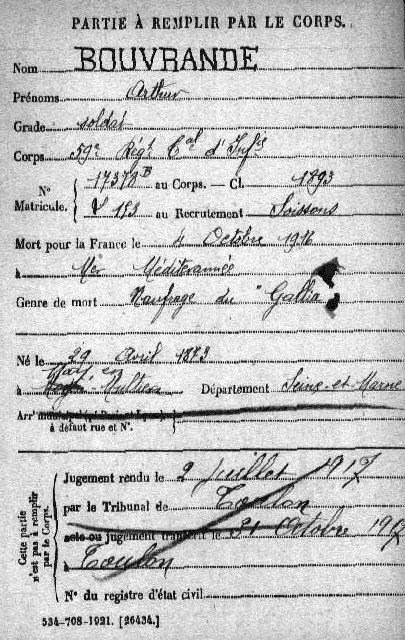 PARTIE À REMPLIR PAR LE CORPS.
Nom BOUVRANDE
Prénoms Arthur
Grade soldat
Corps 59e Régt Cal d'Infie
17378 B au Corps. — Cl. 1893
N° Matricule.
153 au Recrutement Soissons
Mort pour la France le 4 Octobre 1916
à Mer Méditerannée
Genre de mort Naufrage du "Gallia"
Né le 29 Avril 1873
à May en Multien Département Seine-et-Marne
Arrt municipal (pr Paris et Lyon),
à défaut rue et N°.
Cette partie n'est pas à remplir par le Corps.
Jugement rendu le 2 Juillet 1917
par le Tribunal de Toulon
acte ou jugement transcrit le 31 Octobre 1917
à Toulon
N° du registre d'état civil
534-708-1921. [26434.]